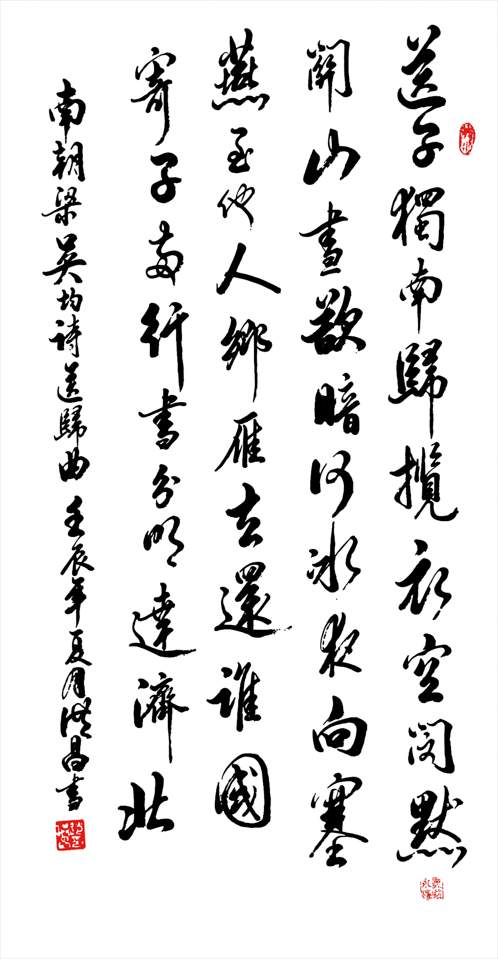 送子獨南歸攬衣空閔默
關山晝欲暗河冰夜向塞
燕至他人鄉雁去還誰國
寄子兩行書分明達濟北
南朝梁吴均詩送歸曲壬辰年夏月昌書